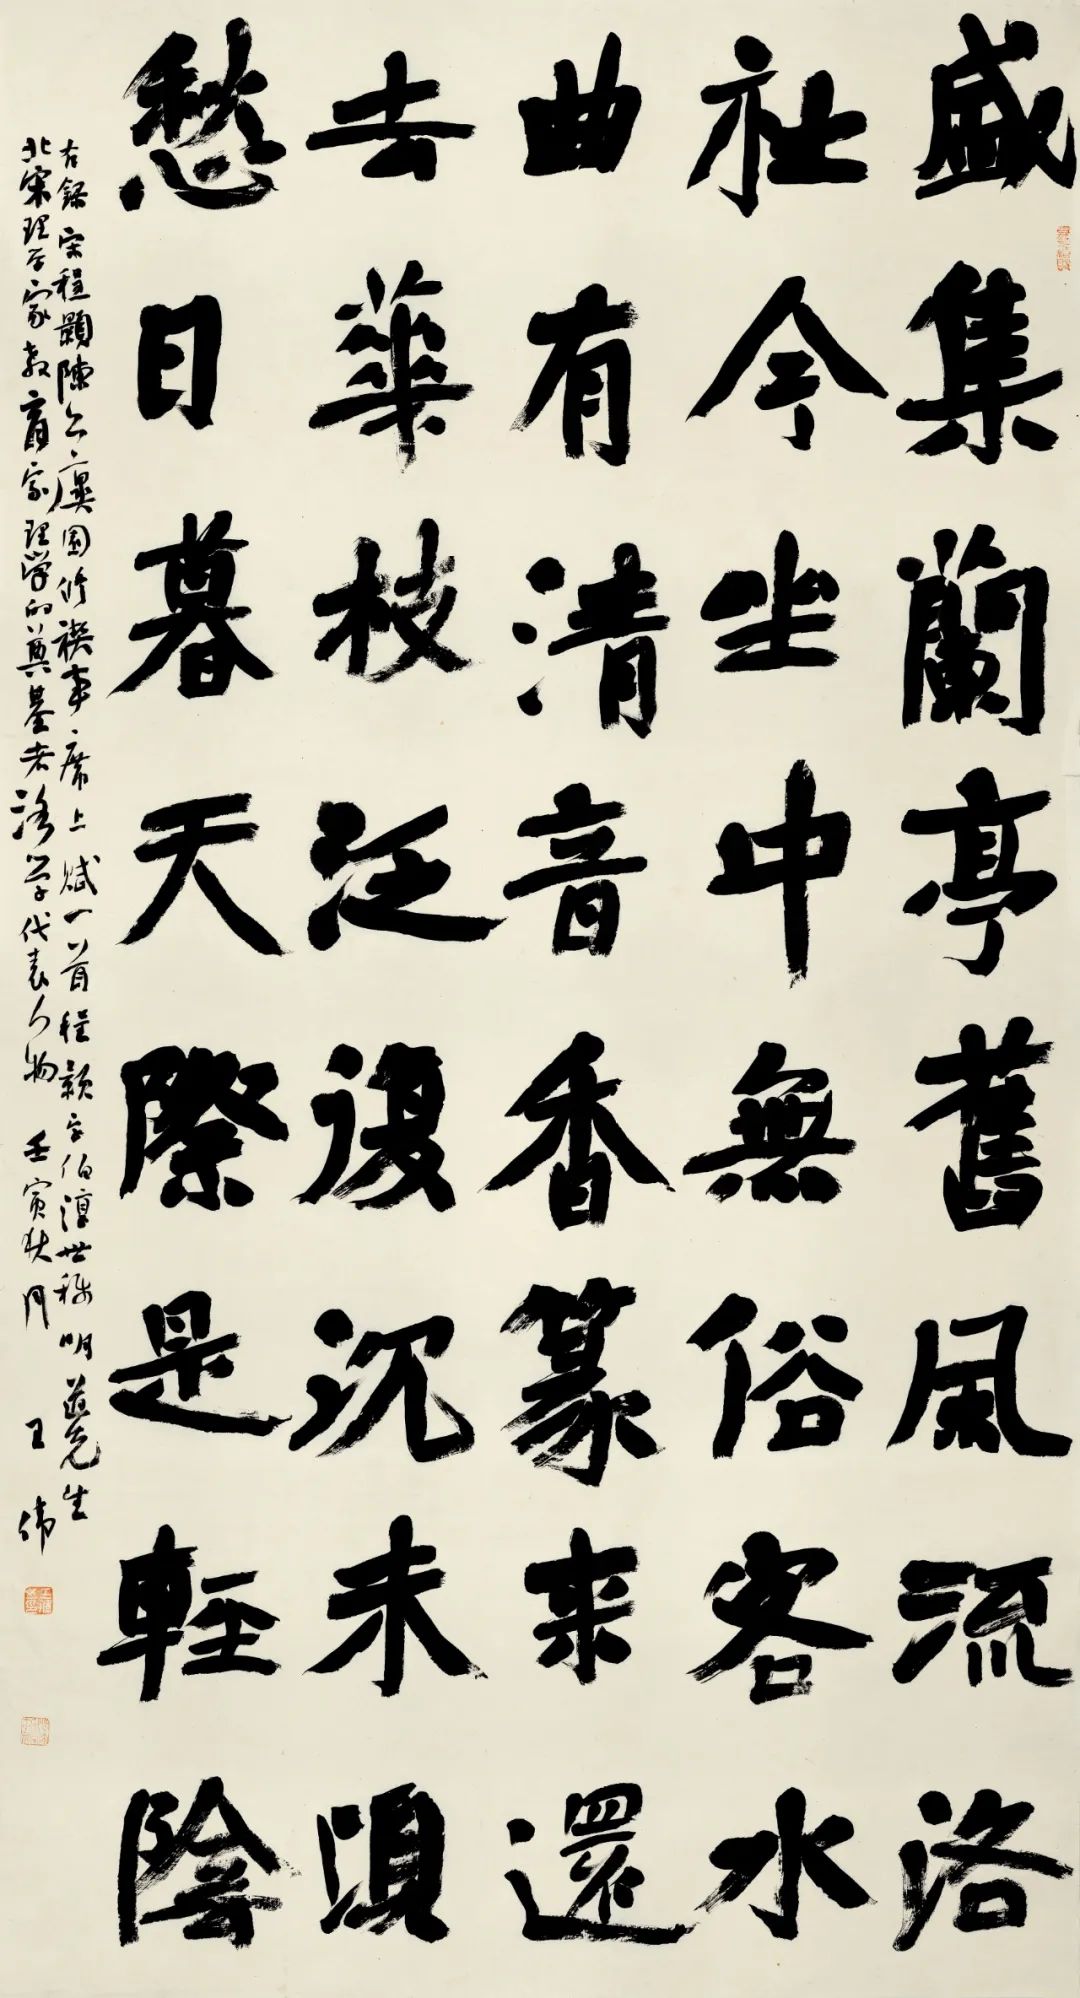 盛集蘭亭舊風流洛
社今坐中無俗客水
曲有清音香篆来還
去華枝泛復沉未須
愁日暮天際是輕陰
右錄宋程顥陳公廙園修禊事席上賦一首程顥字伯淳世称明道先生
北宋理学家教育家理學的奠基者洛学代表人物 壬寅秋月 王偉